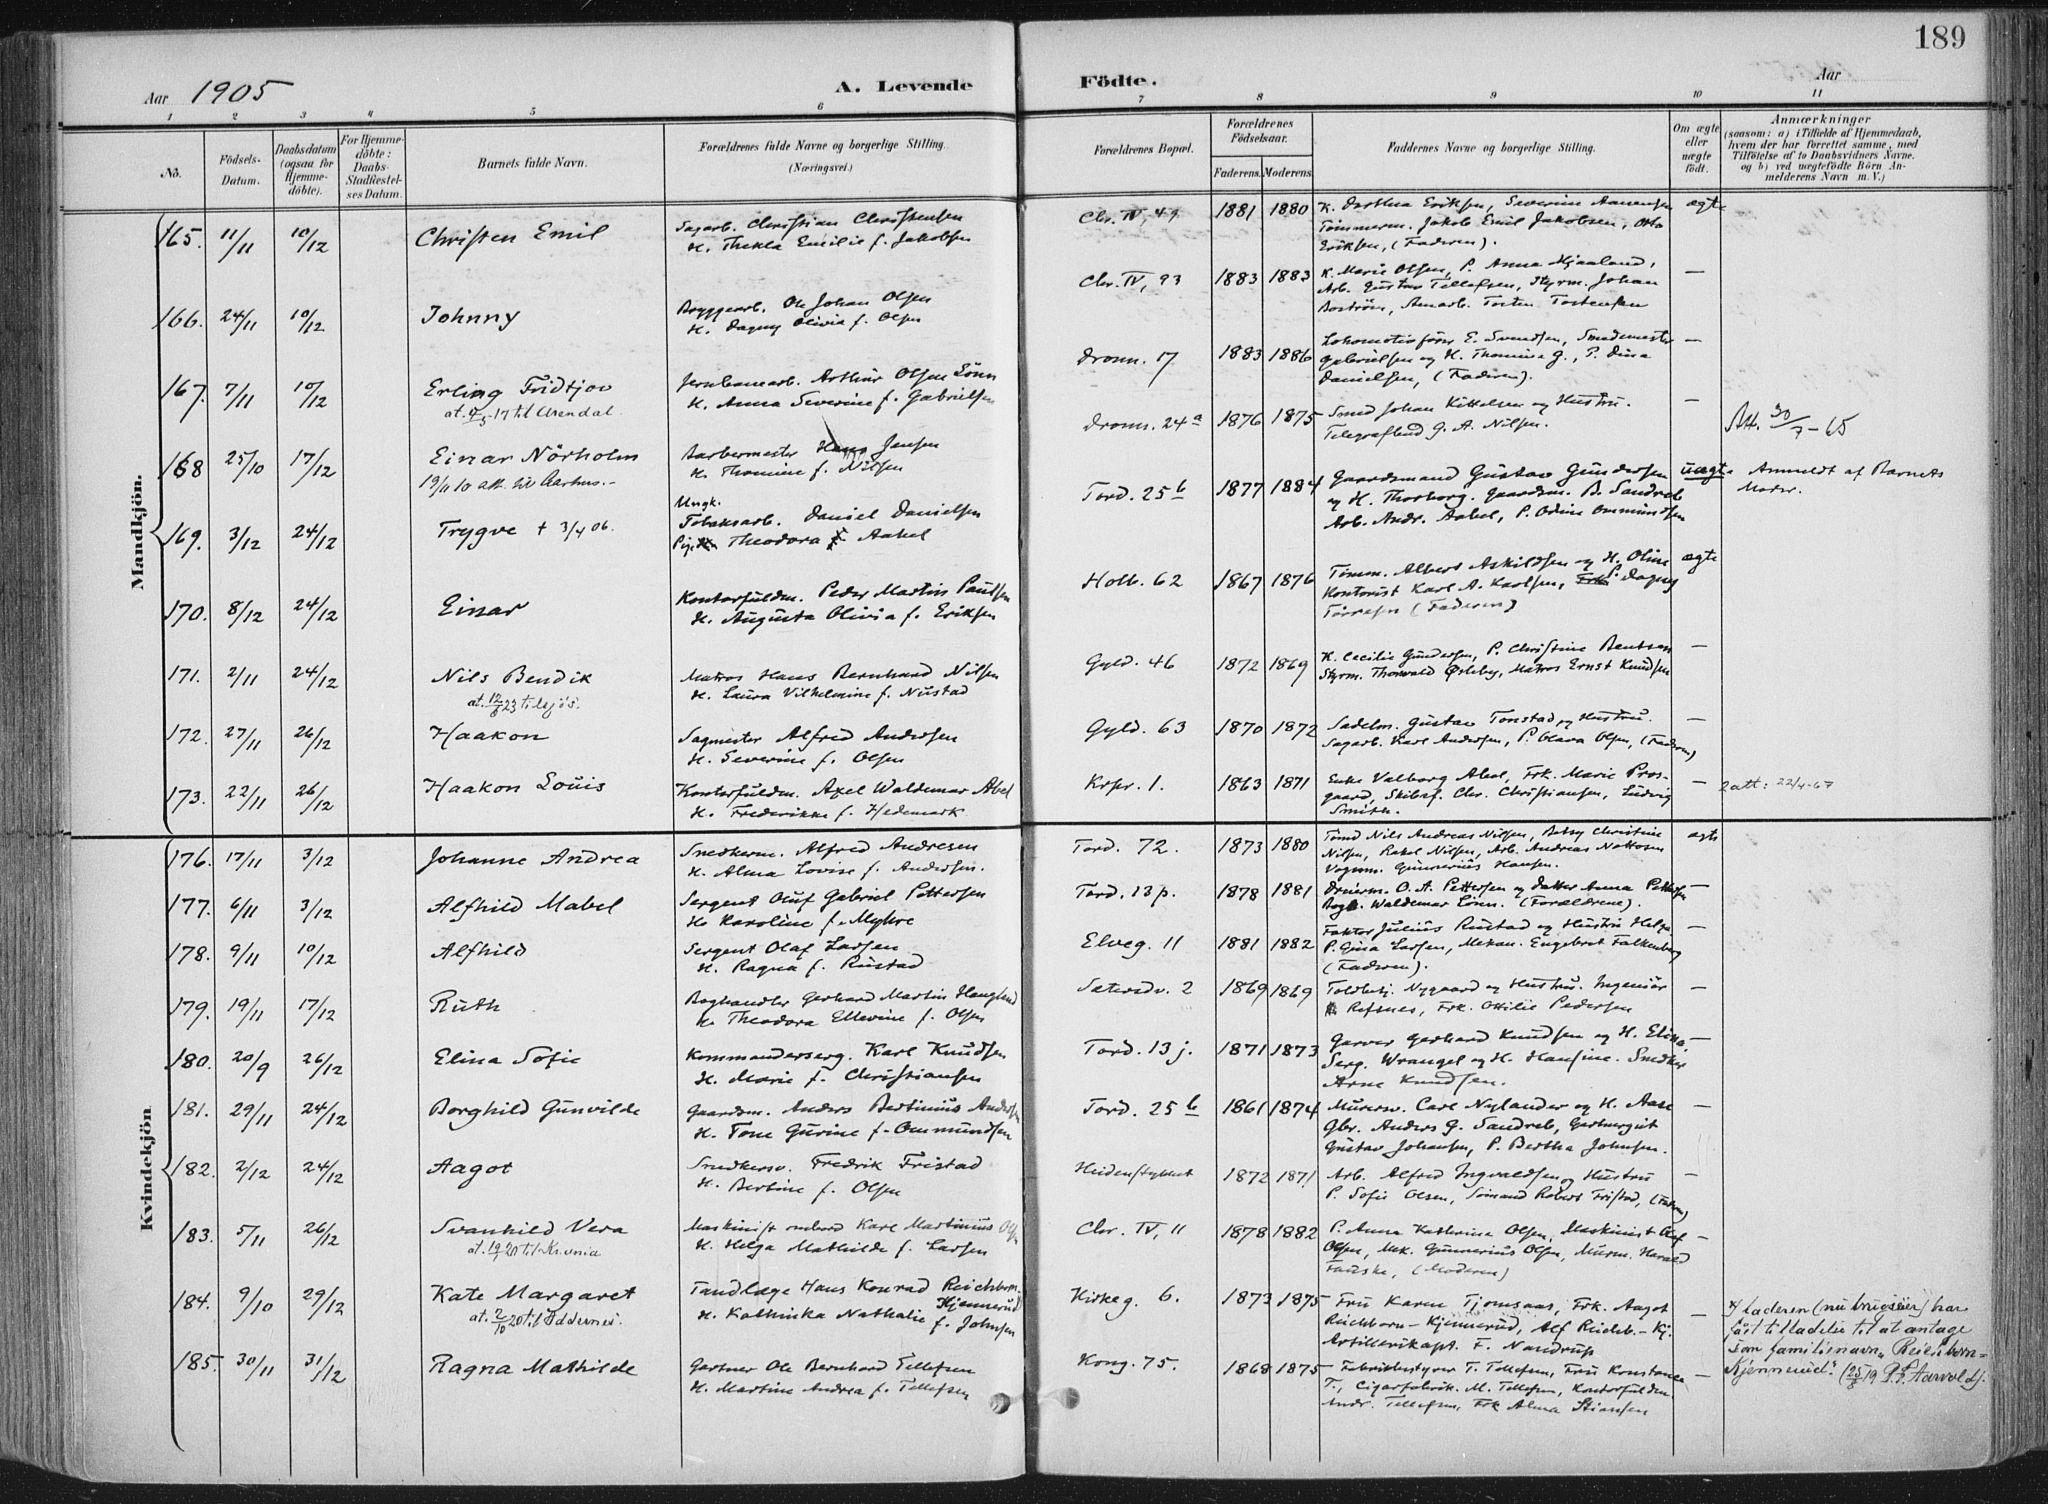 189
Aar 1905
A. Levende
Födte.
Aar
1 2 3 4 5 6 7 8 9 10 11
No.
Födsels-Datum.
Daabsdatum (ogsaa for Hjemme-döbte).
For Hjemme-döbte: Daabs-Stadfæstelses Datum.
Barnets fulde Navn.
Forældrenes fulde Navne og borgerlige Stilling.
(Næringsvei.)
Forældrenes Bopæl.
Forældrenes Födselsaar.
Faderens. Moderens.
Faddernes Navne og borgerlige Stilling.
Om ægte eller uægte födt.
Anmærkninger
(saasom: a) i Tilfælde af Hjemmedaab, hvem der har forrettet samme, med Tilföielse af to Daabsvidners Navne, og b) ved uægtefödte Börn Anmelderens Navn m. V.)
Mandkjön.
165. 11/11 10/12 Christen Emil
Sagarb. Christian Christensen
H. Thekla Emilie f. Jakobsen
Chr. IV, 49 1881 1880
K. Dorthea Eriksen, Severine Aanensen
Tömmerm. Jakob Emil Jakobsen, Otto
Eriksen, (Faderen).
ægte
166. 24/11 10/12 Johnny
Bryggearb. Ole Johan Olsen
H. Dagny Olivia f. Olsen
Chr. IV, 93 1883 1883
K. Marie Olsen, P. Anna Mjaaland,
Arb. Gustav Tellefsen, Styrm. Johan
Boström, Torsten Torstensen
—
167. 7/11 10/12 Erling Fridtjov
at. 5-17 til Arendal.
Jernbanearb. Arthur Olsen Lönn
H. Anna Severine f. Gabrielsen
Dronn. 17 1883 1886
Lokomotivförer E. Svendsen, Smedemester
Gabrielsen og H. Thomine G., P. Dina
Danielsen, (Faderen).
—
168 25/10 17/12 Einar Nörholm
19/11 10 att. til Aarhus.-
Barbermester Hans Jensen
H. Thomine f. Nilsen
Dronn. 24a 1876 1875
Smed Johan Kittelsen og Hustru.
Telegrafbud G. A. Nilsen.
—
Att. 30/7-65
169. 3/12 24/12 Trygve + 3/4 06.
Ungk.
Tobaksarb. Daniel Danielsen
Pige Theodora Aabel
Tord. 25 b 1877 1884
Gaardsmand Gustav Gundersen
og H. Thorborg. Gaardsm. B. Sandreb
Arb. Andr. Aabel, P. Odine Ommundsen
uægte Anmeldt af Barnets
Moder.
170. 8/12 24/12 Einar
Kontorfuldm. Peder Martin Paulsen
H. Augusta Olivia f. Eriksen
Holb. 62 1867 1876
Tömm. Albert Askildsen og H. Oline
Kontorist Karl A. Karlsen, P. Dagny
Törresen (Faderen)
ægte
171. 2/11 24/12 Nils Bendik
at. 12/8 23 til sjös.
Matros Hans Bernhard Nilsen
H. Laura Vilhelmine f. Nustad
Gyld. 46 1872 1869
K. Cecilie Gundersen, P. Christine Bentsen
Styrm. Thorvald Ösleby, Matros Ernst Knudsen
—
172. 27/11 26/12 Haakon
Sagmester Alfred Andersen
H. Severine f. Olsen
Gyld. 63 1870 1872
Sadelm. Gustav Tonstad og Hustru.
Sagarb. Karl Andersen, P. Olava Olsen, (Faderen)
—
173. 22/11 26/12 Haakon Louis
Kontorfuldm. Axel Waldemar Abel
H. Frederikke f. Hedemark
Krpr. 1. 1863 1871
Enke Valborg Abel, Frk. Marie Pros-
gaard, Skibsf. Chr. Christiansen, Ludvig
Smith.
— 2 att: 22/4-67
Kvindekjön.
176. 17/11 3/12 Johanne Andrea
Snedkerm. Alfred Andresen
H. Alma Lovise f. Andersen.
Tord. 72. 1873 1880
Tömd Nils Andreas Nilsen, Betsy Christine
Nilsen, Rakel Nilsen, Arb. Andreas Nottosen
Vognm. Gunnerius Hansen.
ægte
177. 6/11 3/12 Alfhild Mabel
Sergent Oluf Gabriel Pettersen
H. Karoline f. Myhre
Tord. 13p. 1878 1881
Dreierm. O. A. Pettersen og datter Anna Pettersen
Waldemar Lönn. (Forældrene).
—
178. 9/11 10/12 Alfhild
Sergent Olaf Larsen
H. Ragna f. Rustad
Elveg. 11 1881 1882
Faktor Julius Rustad og Hustru Helga.
P. Gina Larsen, Mekan. Engebret Falkenberg
(Faderen).
—
179. 19/11 17/12 Ruth
Boghandler Gerhard Martin Haugland
H. Theodora Ellevine f. Olsen
Sætersdv. 2 1869 1869
Toldbetj. Nygaard og Hustru. Ingeniör
Refsnes, Frk. Ottilie Pedersen
—
180. 20/9 26/12 Elina Sofie
Kommandersergt. Karl Knudsen
H. Marie f. Christiansen
Tord. 13 j. 1871 1873
Garver Gerhard Knudsen og H. Elina.
Serg. Wrangel og H. Hansine. Snedker
Arne Knudsen.
—
181. 29/11 24/12 Borghild Gunvilde
Gaardsm. Anders Bertinius Andersen
H. Tone Gurine f. Ommundsen
Tord. 25 b 1861 1874
Murersv. Carl Nylander og H. Aase
Gbr. Anders G. Sandreb,
Gustav Johansen, P. Bertha Johnsen.
—
182. 2/12 24/12 Aagot
Snedkersv. Fredrik Fristad
H. Bertine f. Olsen
Heidenstykket 1872 1871
Arb. Alfred Ingvaldsen og Hustru
P. Sofie Olsen, Sömand Robert Fristad, (Faderen)
—
183. 5/11 26/12 Svanhild Vera
at. 19/1 20 til Kr.ania
Maskinist ombord Karl Martinius Olsen
H. Helga Mathilde f. Larsen
Chr. IV, 11 1878 1882
P. Anna Kathrine Olsen, Maskinist Olaf
Olsen, Mek. Gunnerius Olsen, Murm. Harald
Fauske, (Moderen)
—
184. 9/10 29/12 Kate Margaret
at. 2/10 20 til Oddernes.
Tandlæge Hans Konrad Reichborn-
Kjennerud
H. Kathinka Nathalie f. Johnsen
Kirkeg. 6. 1873 1875
Fru Karen Tjomsaas, Frk. Aagot
Reichborn-Kjennerud, Alf Reichb.-Kj.
Artillerikapt. F. Nandrup
—
x/ Faderen (nu brugseier) har
fået tilladelse til at antage
som familienavn „Reichborn-
Kjennerud". (25/8 19 P.P. Aarvold).
185. 30/11 31/12 Ragna Mathilde
Gartner Ole Bernhard Tellefsen
H. Martine Andrea f. Tellefsen
Kong. 75. 1868 1875
Fabrikbestyrer T. Tellefsen, Fru Konstance
T., Cigarfabrik. M. Tellefsen, Kontorfuldm.
Andr. Tellefsen, Frk Alma Stiansen
—